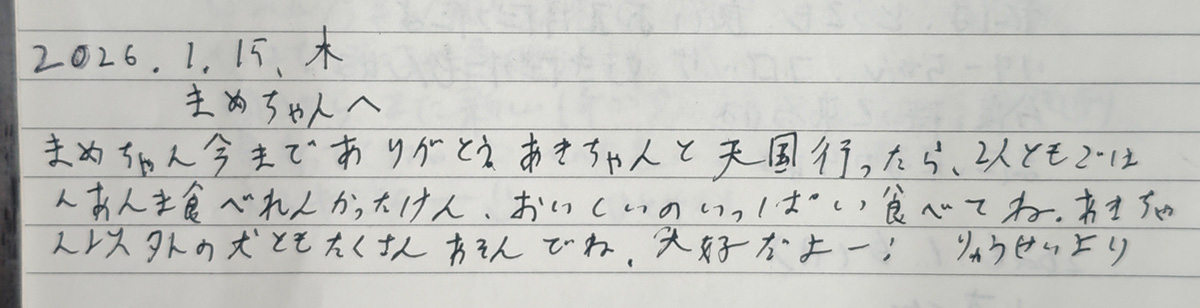 2026.1.15.木
まめちゃんへ
まめちゃん今までありがとう。あきちゃんと天国行ったら、2人ともごは
んあんま食べれんかったけん、おいしいのいっぱい食べてね。あきちゃ
ん以外の犬ともたくさんあそんでね。大好だよー!　りゅうせいより